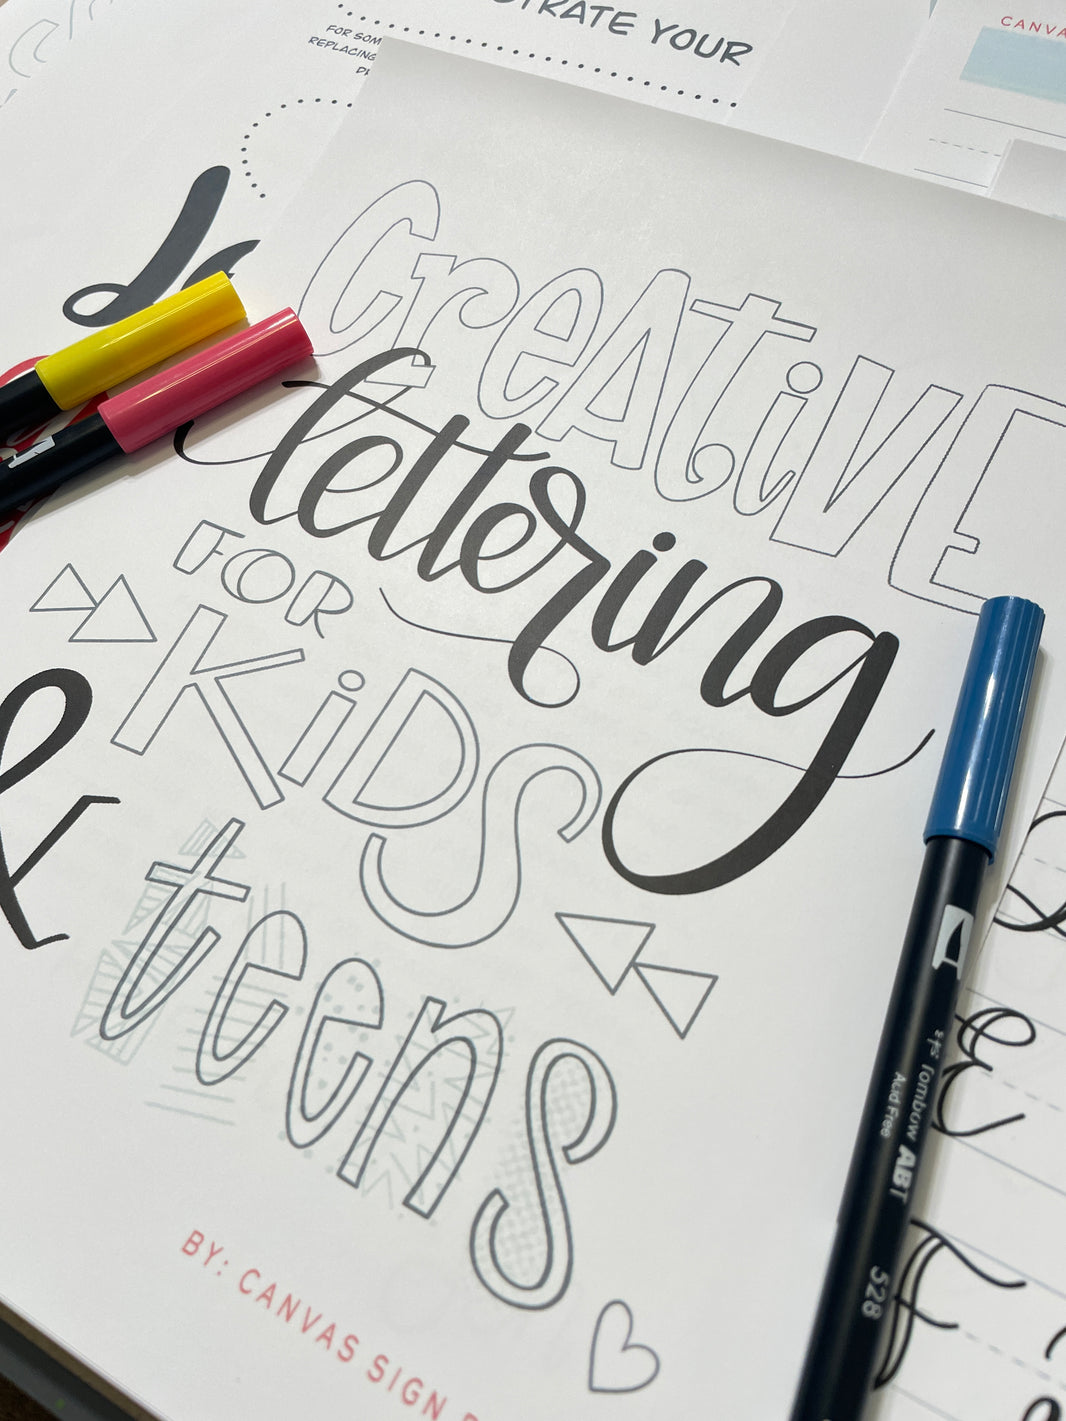 YOUR
FOR SOM
REPLACING
CANVA
CreATiVE
lettering
FOR
KiDS
teens
BY: CANVAS SIGN
Tombow ABT
Acid Free
528